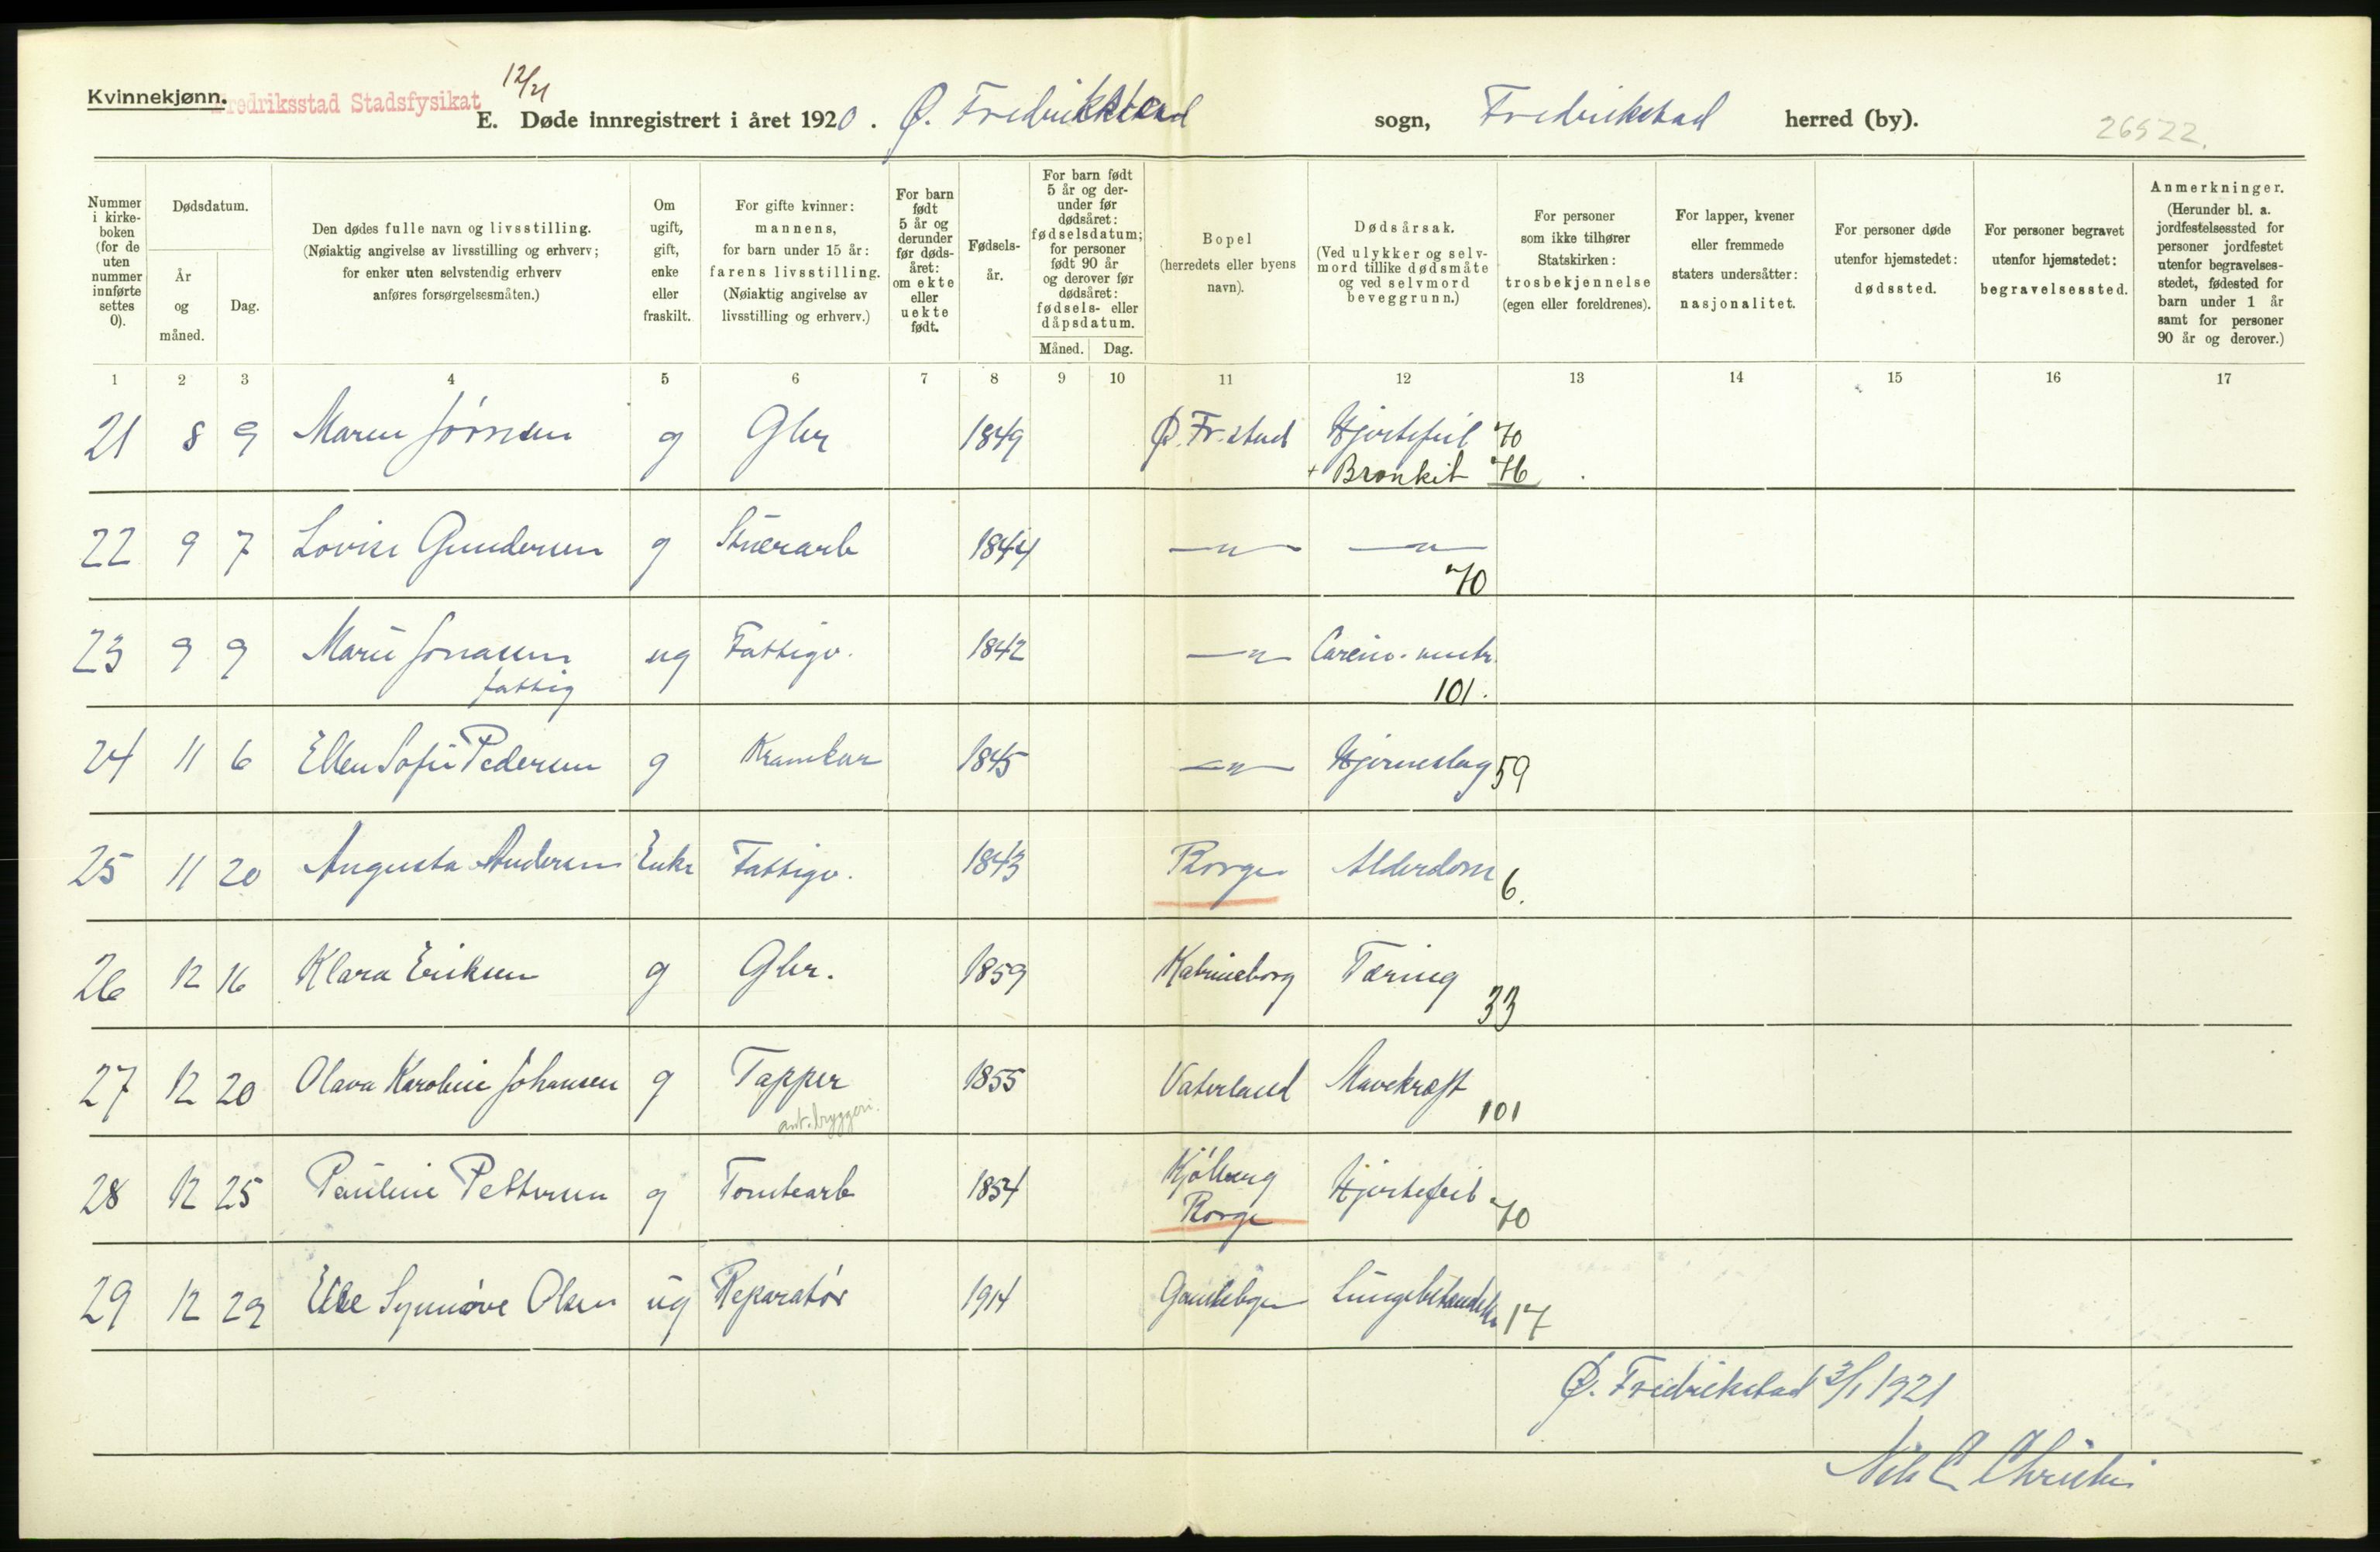 Kvinnekjønn.
Fredriksstad Stadsfysikat
12/21
E. Døde innregistrert i året 1920. Ø. Fredrikstad sogn, Fredrikstad herred (by).
26522.
Nummer i kirke-boken (for de uten nummer innførte settes 0).
Dødsdatum.
År og måned.
Dag.
Den dødes fulle navn og livsstilling.
(Nøiaktig angivelse av livsstilling og erhverv;
for enker uten selvstendig erhverv
anføres forsørgelsesmåten.)
Om ugift, gift, enke eller fraskilt.
For gifte kvinner:
mannens,
for barn under 15 år:
farens livsstilling.
(Nøiaktig angivelse av
livsstilling og erhverv.)
For barn født 5 år og derunder før døds-året: om ekte eller uekte født.
Fødsels-år.
For barn født 5 år og der-under før dødsåret: fødselsdatum; for personer født 90 år og derover før dødsåret: fødsels- eller dåpsdatum.
Måned. Dag.
Bopel
(herredets eller byens
navn).
Dødsårsak.
(Ved ulykker og selv-
mord tillike dødsmåte
og ved selvmord
beveggrunn.)
For personer
som ikke tilhører
Statskirken:
trosbekjennelse
(egen eller foreldrenes).
For lapper, kvener
eller fremmede
staters undersåtter:
nasjonalitet.
For personer døde
utenfor hjemstedet:
dødssted.
For personer begravet
utenfor hjemstedet:
begravelsessted.
Anmerkninger.
(Herunder bl. a.
jordfestelsessted for
personer jordfestet
utenfor begravelses-
stedet, fødested for
barn under 1 år
samt for personer
90 år og derover.)
1 2 3 4 5 6 7 8 9 10 11 12 13 14 15 16 17
21 8 9 Maren Jørnsen g Gbr 1849 Ø. Fr.stad Hjertefeil 70
+ Bronkit 46
22 9 7 Lovise Gundersen g Stuerarb 1844 —"— —"—
70
23 9 9 Marie Jonasen ug Fattigv. 1842 —"—
fattig 101.
24 11 6 Ellen Sofie Pedersen g 1845 —"— Hjerneslag 59
25 11 20 Augusta Andersen Enke Fattigv. 1843 Borge Alderdom 6.
26 12 16 Klara Eriksen g Gbr. 1859 Katrineborg Tæring
33
27 12 20 Olava Karoline Johansen g Tapper 1855 Vaterland Mavekræft
ant. bryggeri. 101
28 12 25 Pauline Pettersen g Tomtearb 1854 Kjølberg Hjertefeil 70
Borge
29 12 29 Else Synnøve Olsen ug Reparatør 1914 Gamlebyen Lungebetændelse 17
Ø. Fredrikstad 3/1 1921
Nils C Christie